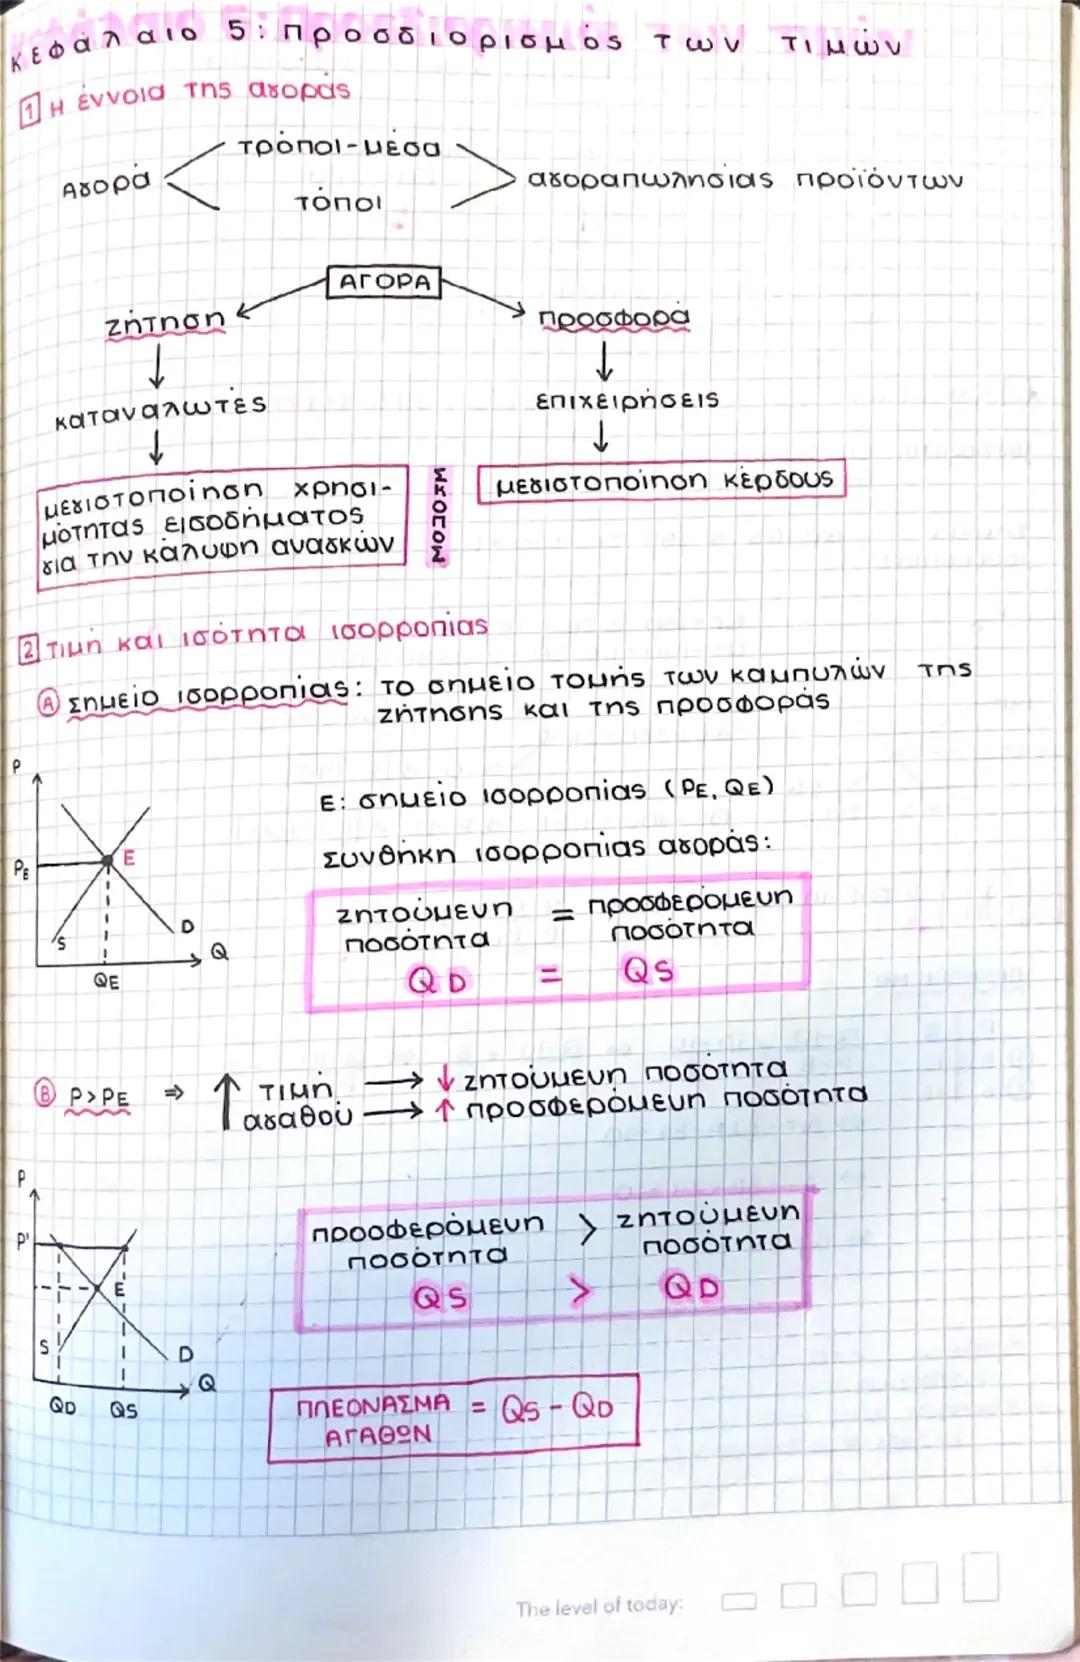 Κεφάλαιο 5: Προσδιορισμός των τιμών
1 Η έννοια της αγοράς
τρόποι-μέσα
Αγορά
αγοραπωλησίας προϊόντων
τόποι
ΑΓΟΡΑ
ζήτηση
προσφορά
καταναλωτές
επιχειρήσεις
μεγιστοποίηση χρησι-
μότητας εισοδήματος
για την κάλυψη αναγκών
ΣΚΟΠΟΣ
μεγιστοποίηση κέρδους
2 Τιμή και ισότητα ισορροπίας
Α Σημείο ισορροπίας: το σημείο τομής των καμπυλών της
ζήτησης και της προσφοράς
P
PE
E
S
D
Q
QE
Ε: σημείο ισορροπίας (PE, QE)
Συνθήκη ισορροπίας αγοράς:
ζητούμενη = προσφερόμενη
ποσότητα ποσότητα
QD = QS
Β P>PE ⇒ ↑ τιμή → ↓ ζητούμενη ποσότητα
αγαθού → ↑ προσφερόμενη ποσότητα
P
P'
E
S
D
Q
QD QS
προσφερόμενη > ζητούμενη
ποσότητα ποσότητα
QS > QD
ΠΛΕΟΝΑΣΜΑ = QS - QD
ΑΓΑΘΩΝ
The level of today: